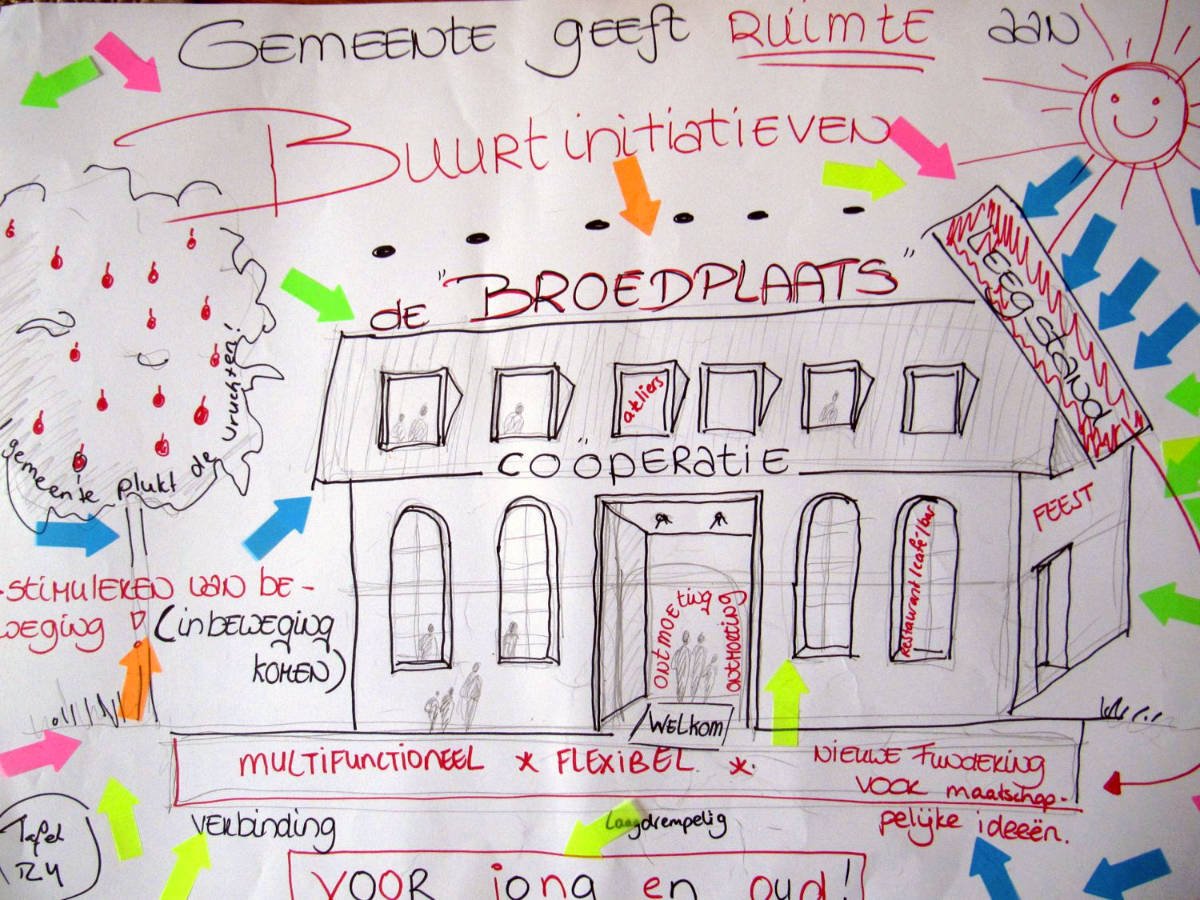 GEMEENTE geeft RUIMTE aan
BUURTinitiatieven
de "BROEDPLAATS"
Leegstand
ateliers
COÖPERATIE
gemeente plukt de vruchten!
FEEST
Restaurant/café/bar
ONTMOETING
ONTHAASTING
- STIMULEREN VAN BE-
WEGING ! (inBEWEGING
KOMEN)
WELKOM
MULTIFUNCTIONEEL * FLEXIBEL *
NIEUWE FUNDERING
VOOR maatschap-
pelijke ideeën.
VERBINDING
Laagdrempelig
Tafel
R4
VOOR jong en oud!